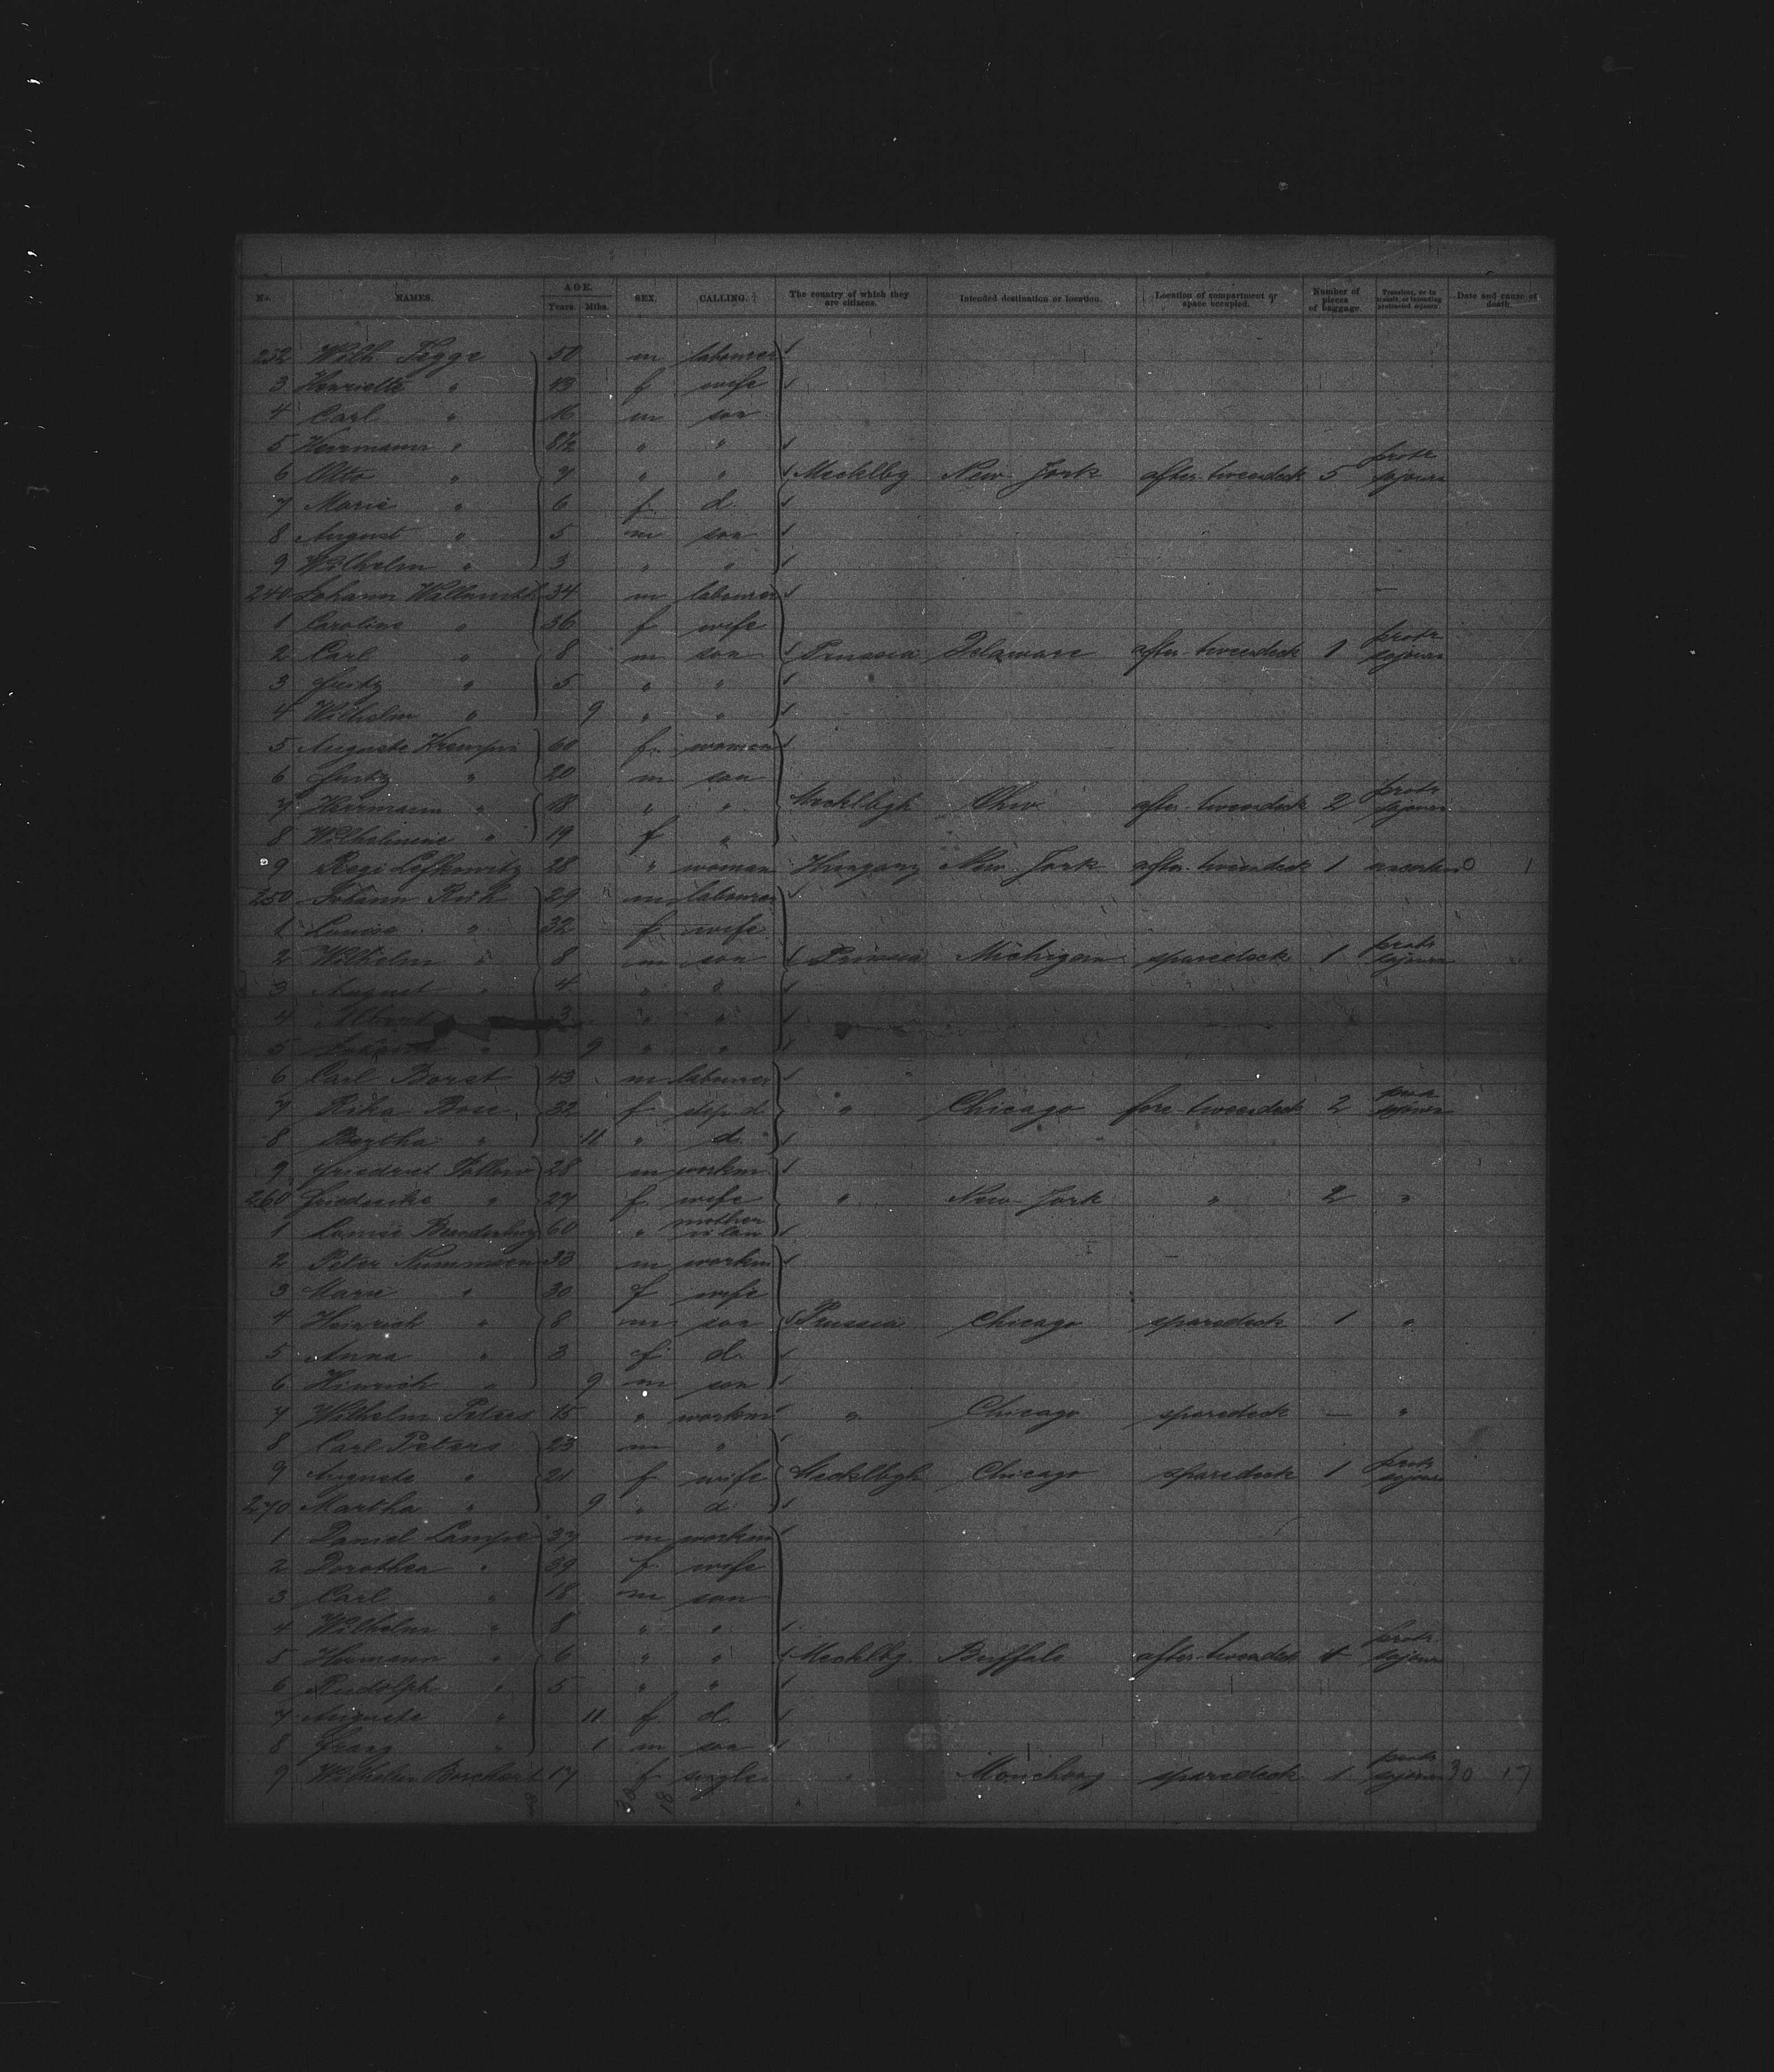 No. NAMES. AGE. Years. Mths. SEX. CALLING. The country of which they are citizens. Intended destination or location. Location of compartment or space occupied. Number of pieces of baggage. Transient, or in transit, or intending protracted sojourn. Date and cause of death.
232 Wilh. Tegge 50 m labourer
3 Henriette " 43 f wife
4 Carl " 16 m son
5 Herrmann " 8½ " "
6 Otto " 7 " " Mecklbg New-York after-tweendeck 5 protr sojourn
7 Marie " 6 f d.
8 August " 5 m son
9 Wilhelm " 3 " "
240 Johann 34 m labourer
1 Caroline " 36 f wife
2 Carl " 8 m son Prussia Delaware after-tweendeck 1 protr sojourn
3 Fritz " 5 " "
4 Wilhelm " 9 " "
5 Auguste Krempin 60 f. woman
6 Fritz " 20 m son
7 Herrmann " 18 " " Mecklbgh Ohio after-tweendeck 2 protr sojourn
8 Wilhelmine " 19 f "
9 Regi Lefkowitz 28 " woman Hungary New-York after-tweendeck 1 0 1
250 Johann 29 m labourer
1 Louise " 32 f wife
2 Wilhelm " 8 m son Prussia Michigan sparedeck 1 protr sojourn
3 August " 4 " "
4 Albert 3 " "
5 " 9 " "
6 Carl Borst 43 m labourer
7 Rika Bose 32 f step d. " Chicago fore-tweendeck 2 sojourn
8 Bertha " 11 " d.
9 Friedrich 28 m workm
260 Friedericke " 27 f wife " New-York " 2 "
1 Louise 60 " mother in law
2 Peter Nummsen 33 m workm
3 Marie " 30 f wife
4 Heinrich " 8 m son Prussia Chicago sparedeck 1 "
5 Anna " 3 f d.
6 Hinrich " 9 m son
7 Wilhelm Peters 15 " workm " Chicago sparedeck — "
8 Carl Peters 23 m "
9 Auguste " 21 f wife Mecklbgh Chicago sparedeck 1 protr sojourn
270 Martha " 9 " d
1 Daniel Lampe 37 m workm
2 Dorothea " 39 f. wife
3 Carl " 18 m son
4 Wilhelm " 8 " "
5 Hermann " 6 " " Mecklbg Buffalo after-tweendeck 4 protr sojourn
6 Rudolph " 5 " "
7 Auguste " 11 f d.
8 Franz " 1 m son
9 Wilhelm Borchert 17 f single " sparedeck 1 protr sojourn 30 17